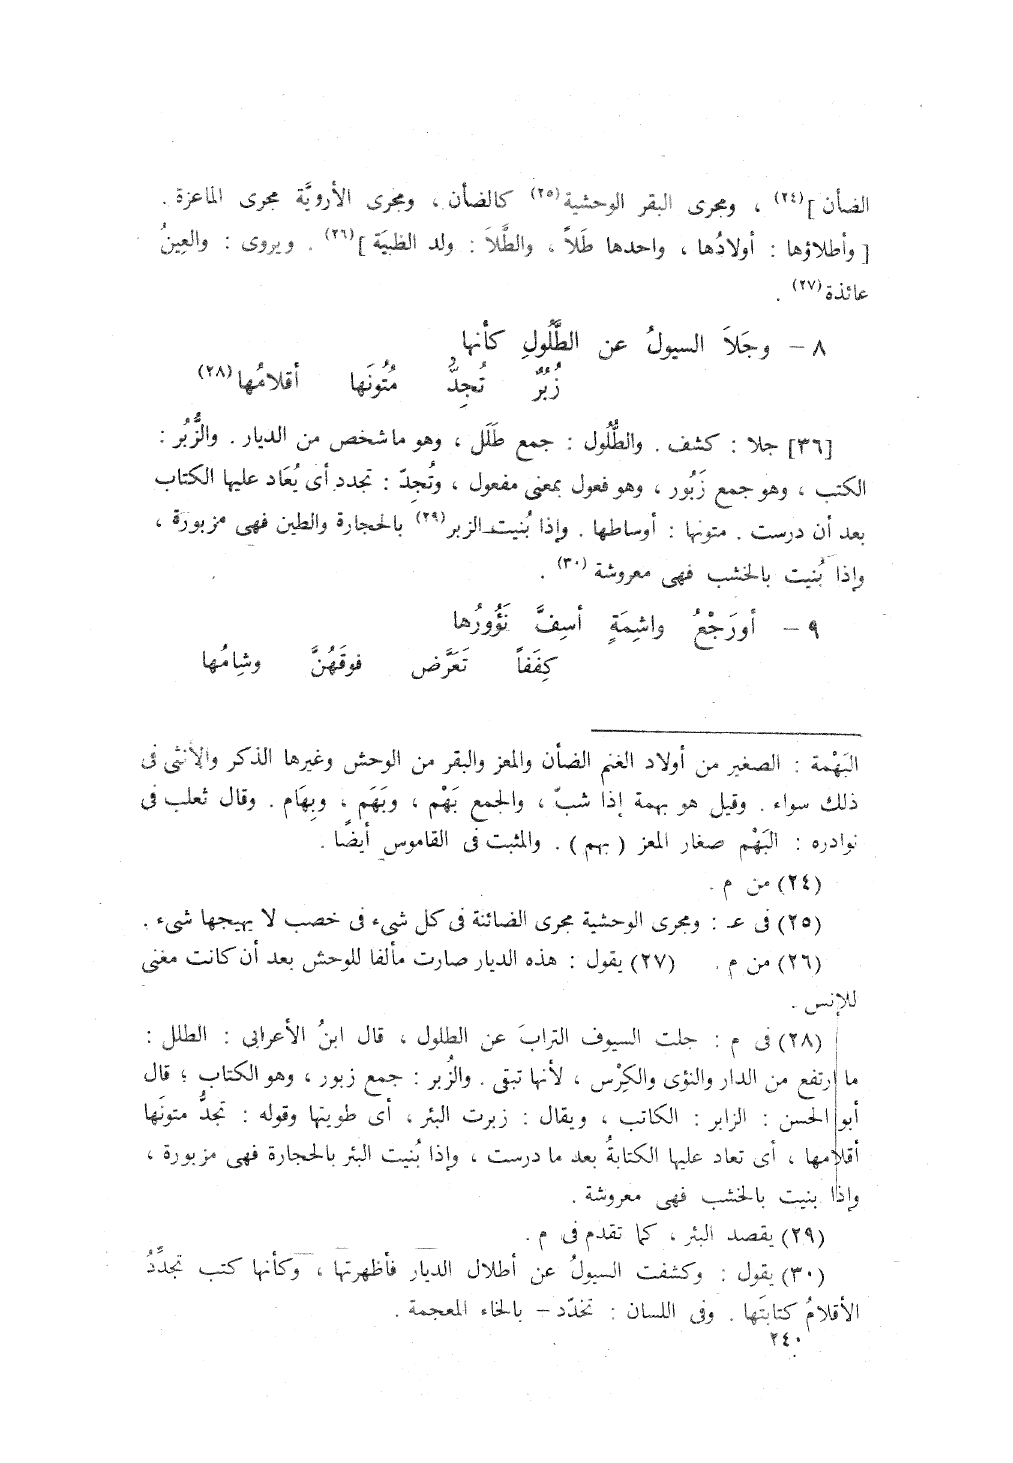 الضأن ](٢٤) ، ومجرى البقر الوحشية(٢٥) كالضأن ، ومجرى الأرويَّة مجرى الماعزة .
[ وأطلاؤها : أولادُها ، واحدها طَلاً ، والطَّلاَ : ولد الظبيَة ](٢٦) . ويروى : والعِينُ
عائذة(٢٧) .
٨ – وجَلاَ السيولُ عن الطُّلُولِ كأنها
زُبُرٌ تُجِدُّ مُتُونَها أقلامُها(٢٨)
[٣٦] جلا : كشف . والطُّلُول : جمع طَلَل ، وهو ما شخص من الديار . والزُّبُر :
الكتب ، وهو جمع زَبُور ، وهو فعول بمعنى مفعول ، وتُجِدّ : تجدد أى يُعَاد عليها الكتاب
بعد أن درست . متونها : أوساطها . وإذا بُنيت الزبر(٢٩) بالحجارة والطين فهى مزبورة ،
وإذا بُنيت بالخشب فهى معروشة (٣٠) .
٩ – أورَجْعُ واشِمَةٍ أسِفَّ نَؤُورُها
كِفَفاً تَعَرَّض فوقَهُنَّ وشِامُها
البَهْمة : الصغير من أولاد الغنم الضأن والمعز والبقر من الوحش وغيرها الذكر والأنثى فى
ذلك سواء . وقيل هو بهمة إذا شبّ ، والجمع بَهْم ، وبَهَم ، وبِهَام . وقال ثعلب فى
نوادره : البَهْم صغار المعز ( بهم ) . والمثبت فى القاموس أيضًا .
(٢٤) من م .
(٢٥) فى عـ : ومجرى الوحشية مجرى الضائنة فى كل شىء فى خصب لا يهيجها شىء .
(٢٦) من م . (٢٧) يقول : هذه الديار صارت مألفا للوحش بعد أن كانت مغنى
للإنس .
(٢٨) فى م : جلت السيوف الترابَ عن الطلول ، قال ابنُ الأعرابى : الطلل :
ما ارتفع من الدار والنؤى والكِرْس ، لأنها تبقى . والزُبر : جمع زبور ، وهو الكتاب ؛ قال
أبو الحسن : الزابر : الكاتب ، ويقال : زبرت البئر ، أى طويتها وقوله : تجدُّ متونَها
أقلامها ، أى تعاد عليها الكتابةُ بعد ما درست ، وإذا بُنيت البئر بالحجارة فهى مزبورة ،
وإذا بنيت بالخشب فهى معروشة .
(٢٩) يقصد البئر ، كما تقدم فى م .
(٣٠) يقول : وكشفت السيولُ عن أطلال الديار فأظهرتها ، وكأنها كتب تجدِّدُ
الأقلامُ كتابتَها . وفى اللسان : تخدّد – بالخاء المعجمة .
٢٤٠